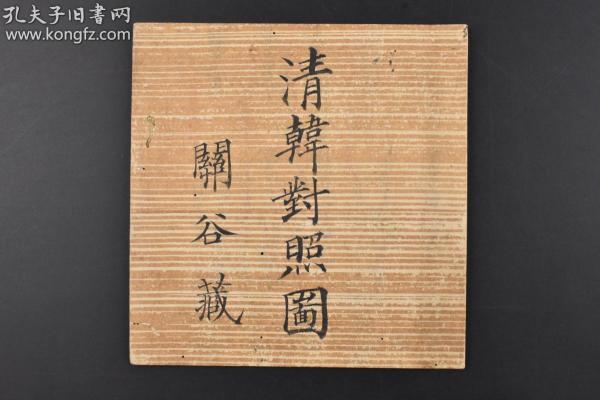 清韓對照圖
關谷藏
孔夫子旧書网
www.kongfz.com